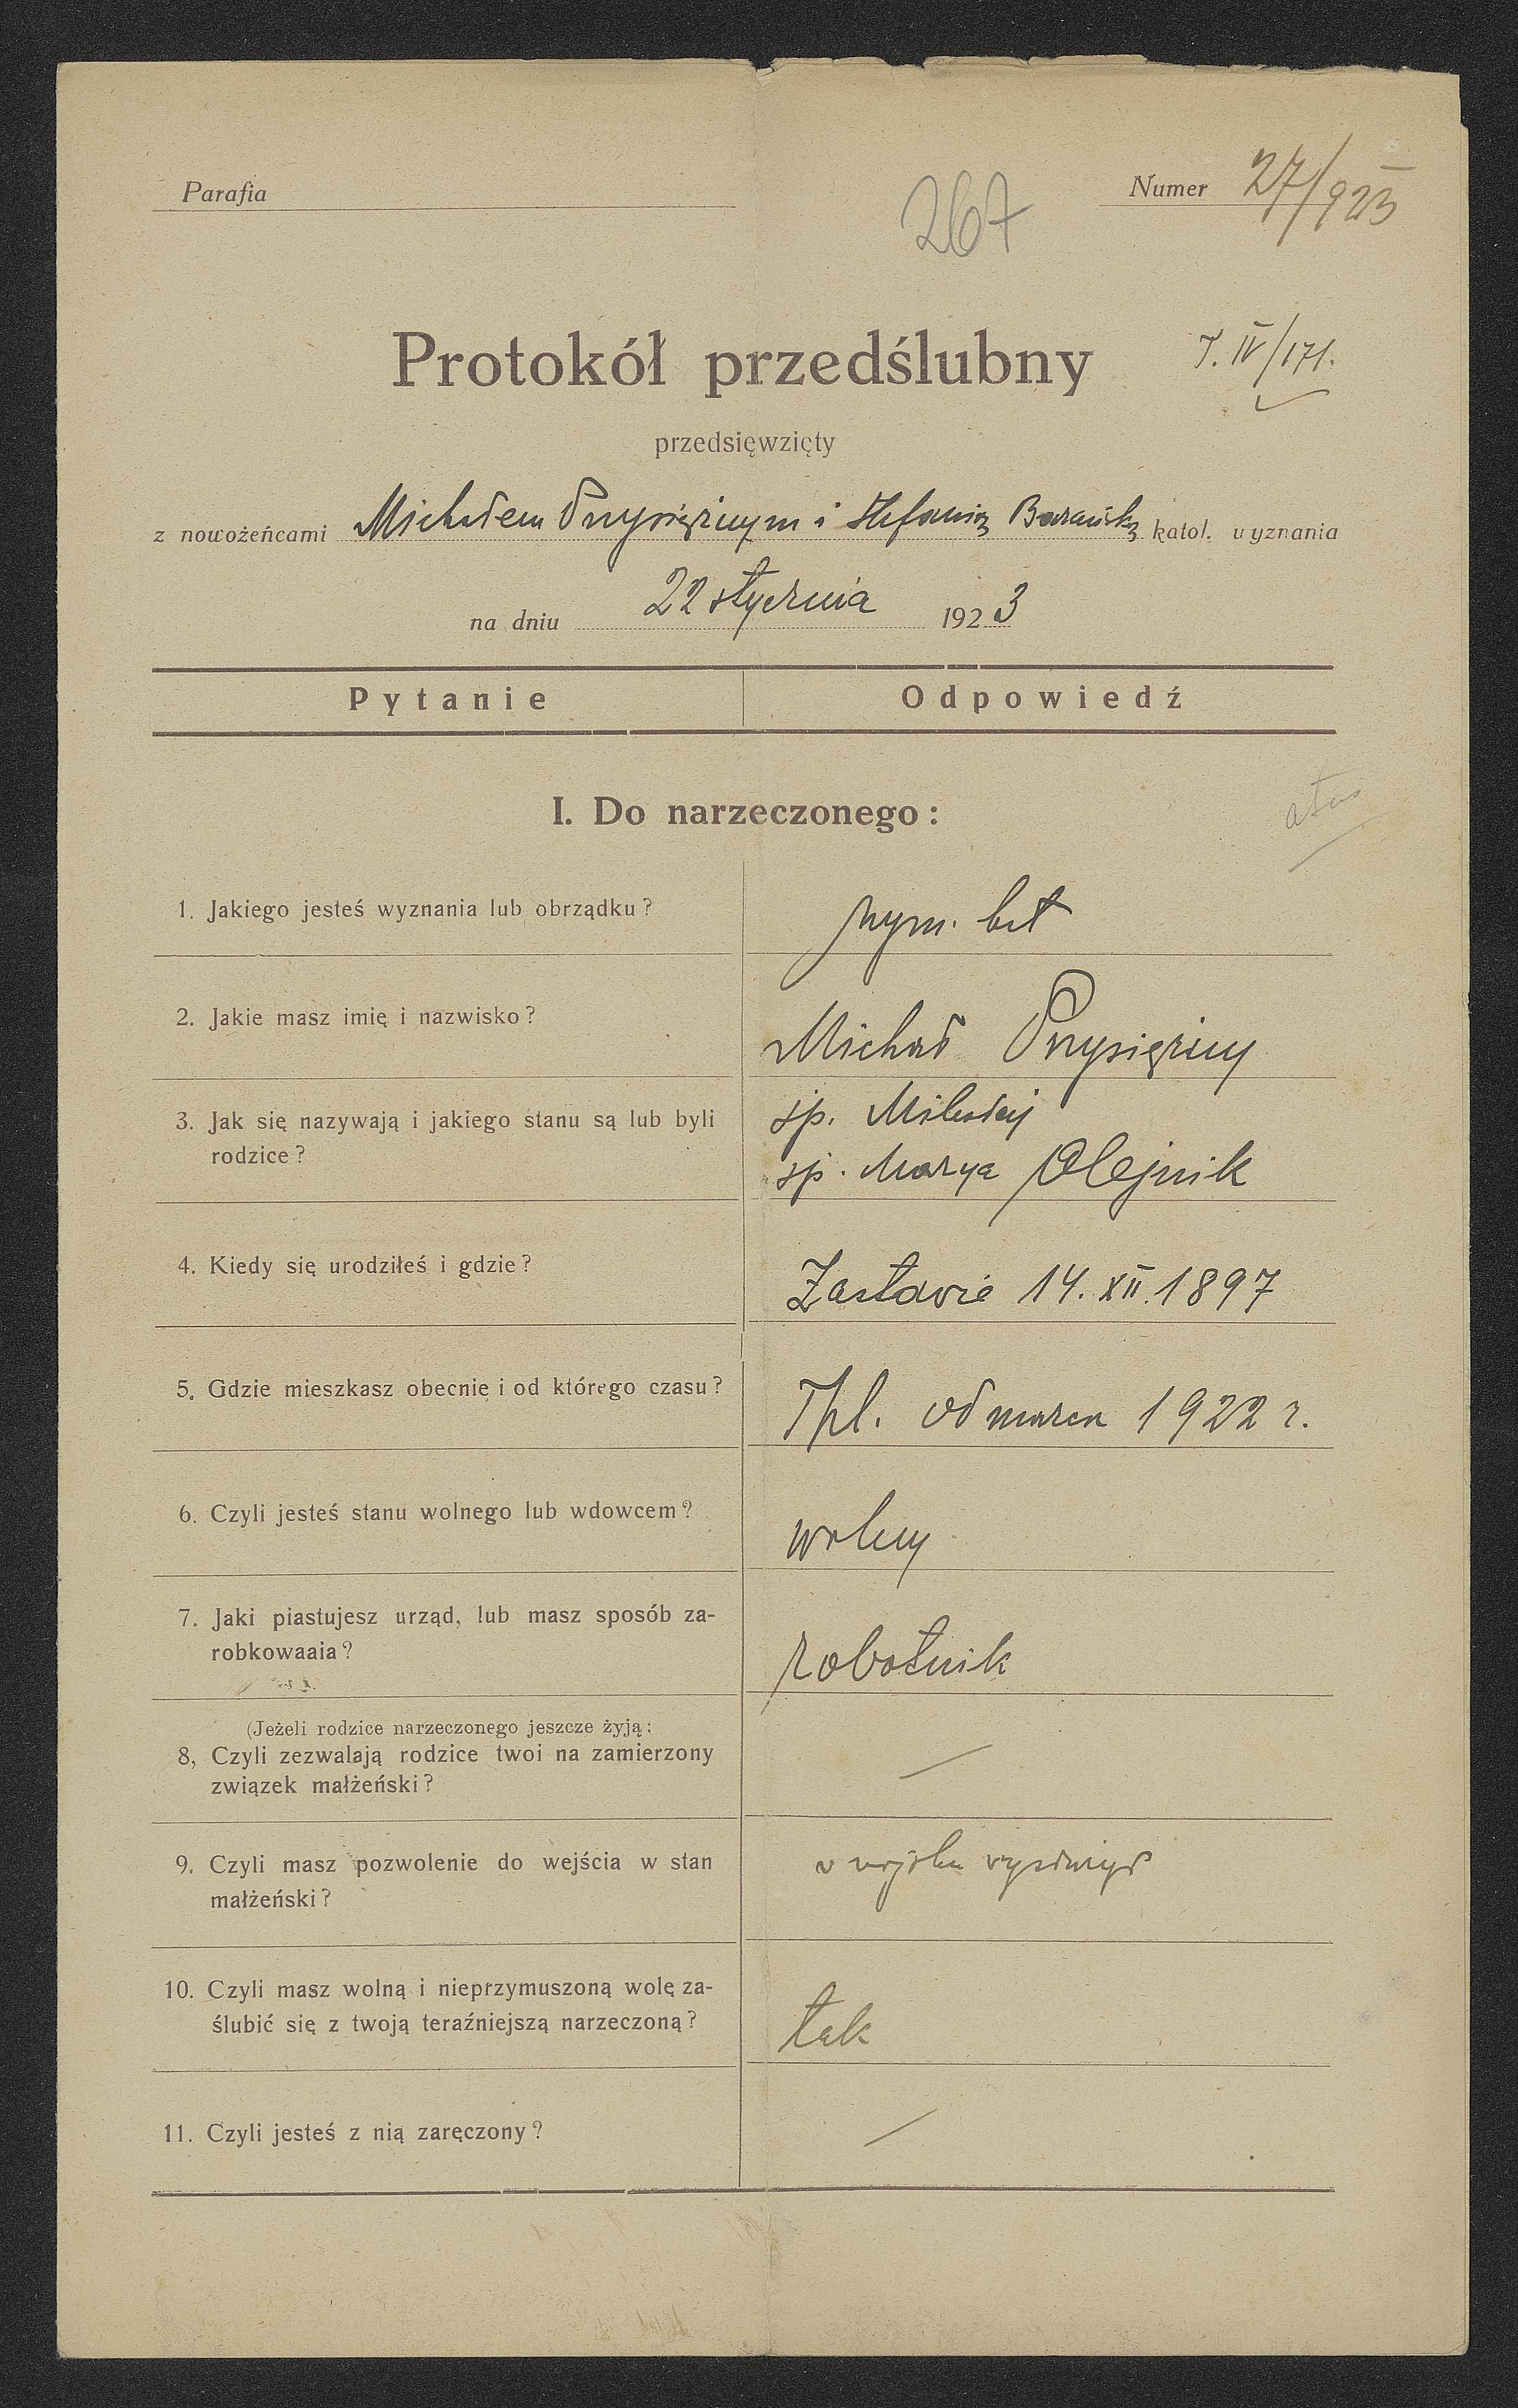 Parafia
Numer 27/923
267
Protokół przedślubny
T. IV/171.
przedsięwzięty
z nowożeńcami Michałem Przysiężnym i Stefanią Barańską katol. wyznania
na dniu 22 stycznia 1923
Pytanie Odpowiedź
I. Do narzeczonego:
1. Jakiego jesteś wyznania lub obrządku? rzym. kat
2. Jakie masz imię i nazwisko? Michał Przysiężny
3. Jak się nazywają i jakiego stanu są lub byli śp. Mikołaj
rodzice? śp. Marya Olejnik
4. Kiedy się urodziłeś i gdzie? Zastavie 14. XII. 1897
5. Gdzie mieszkasz obecnie i od którego czasu? Tpl. od marca 1922 r.
6. Czyli jesteś stanu wolnego lub wdowcem? wolny
7. Jaki piastujesz urząd, lub masz sposób za-
robkowaaia? robotnik
(Jeżeli rodzice narzeczonego jeszcze żyją:
8, Czyli zezwalają rodzice twoi na zamierzony
związek małżeński? —
9. Czyli masz pozwolenie do wejścia w stan w wojsku wysłużył
małżeński?
10. Czyli masz wolną i nieprzymuszoną wolę za-
ślubić się z twoją teraźniejszą narzeczoną? tak
11. Czyli jesteś z nią zaręczony? —